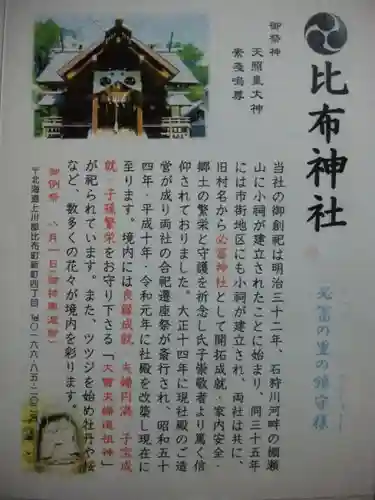 比布神社
御祭神
天照皇大神
素戔嗚尊
当社の御創祀は明治三十二年、石狩川河畔の棚瀬
山に小祠が建立されたことに始まり、同三十五年
には市街地区にも小祠が建立され、両社は共に、
旧村名から必富神社として開拓成就・家内安全・
郷土の繁栄と守護を祈念し氏子崇敬者より篤く信
仰されておりました。大正十四年に現社殿のご造
営が成り両社の合祀遷座祭が斎行され、昭和五十
四年・平成十年・令和元年に社殿を改築し現在に
至ります。境内には良縁成就・夫婦円満・子宝成
就・子孫繁栄をお守り下さる「大雪夫婦道祖神」
が祀られています。また、ツツジを始め牡丹や桜
など、数多くの花々が境内を彩ります。
御例祭 八月一日(御神輿渡御)
〒北海道上川郡比布町新町四丁目 ℡〇一六六-八五-二〇
の里の鎮守様